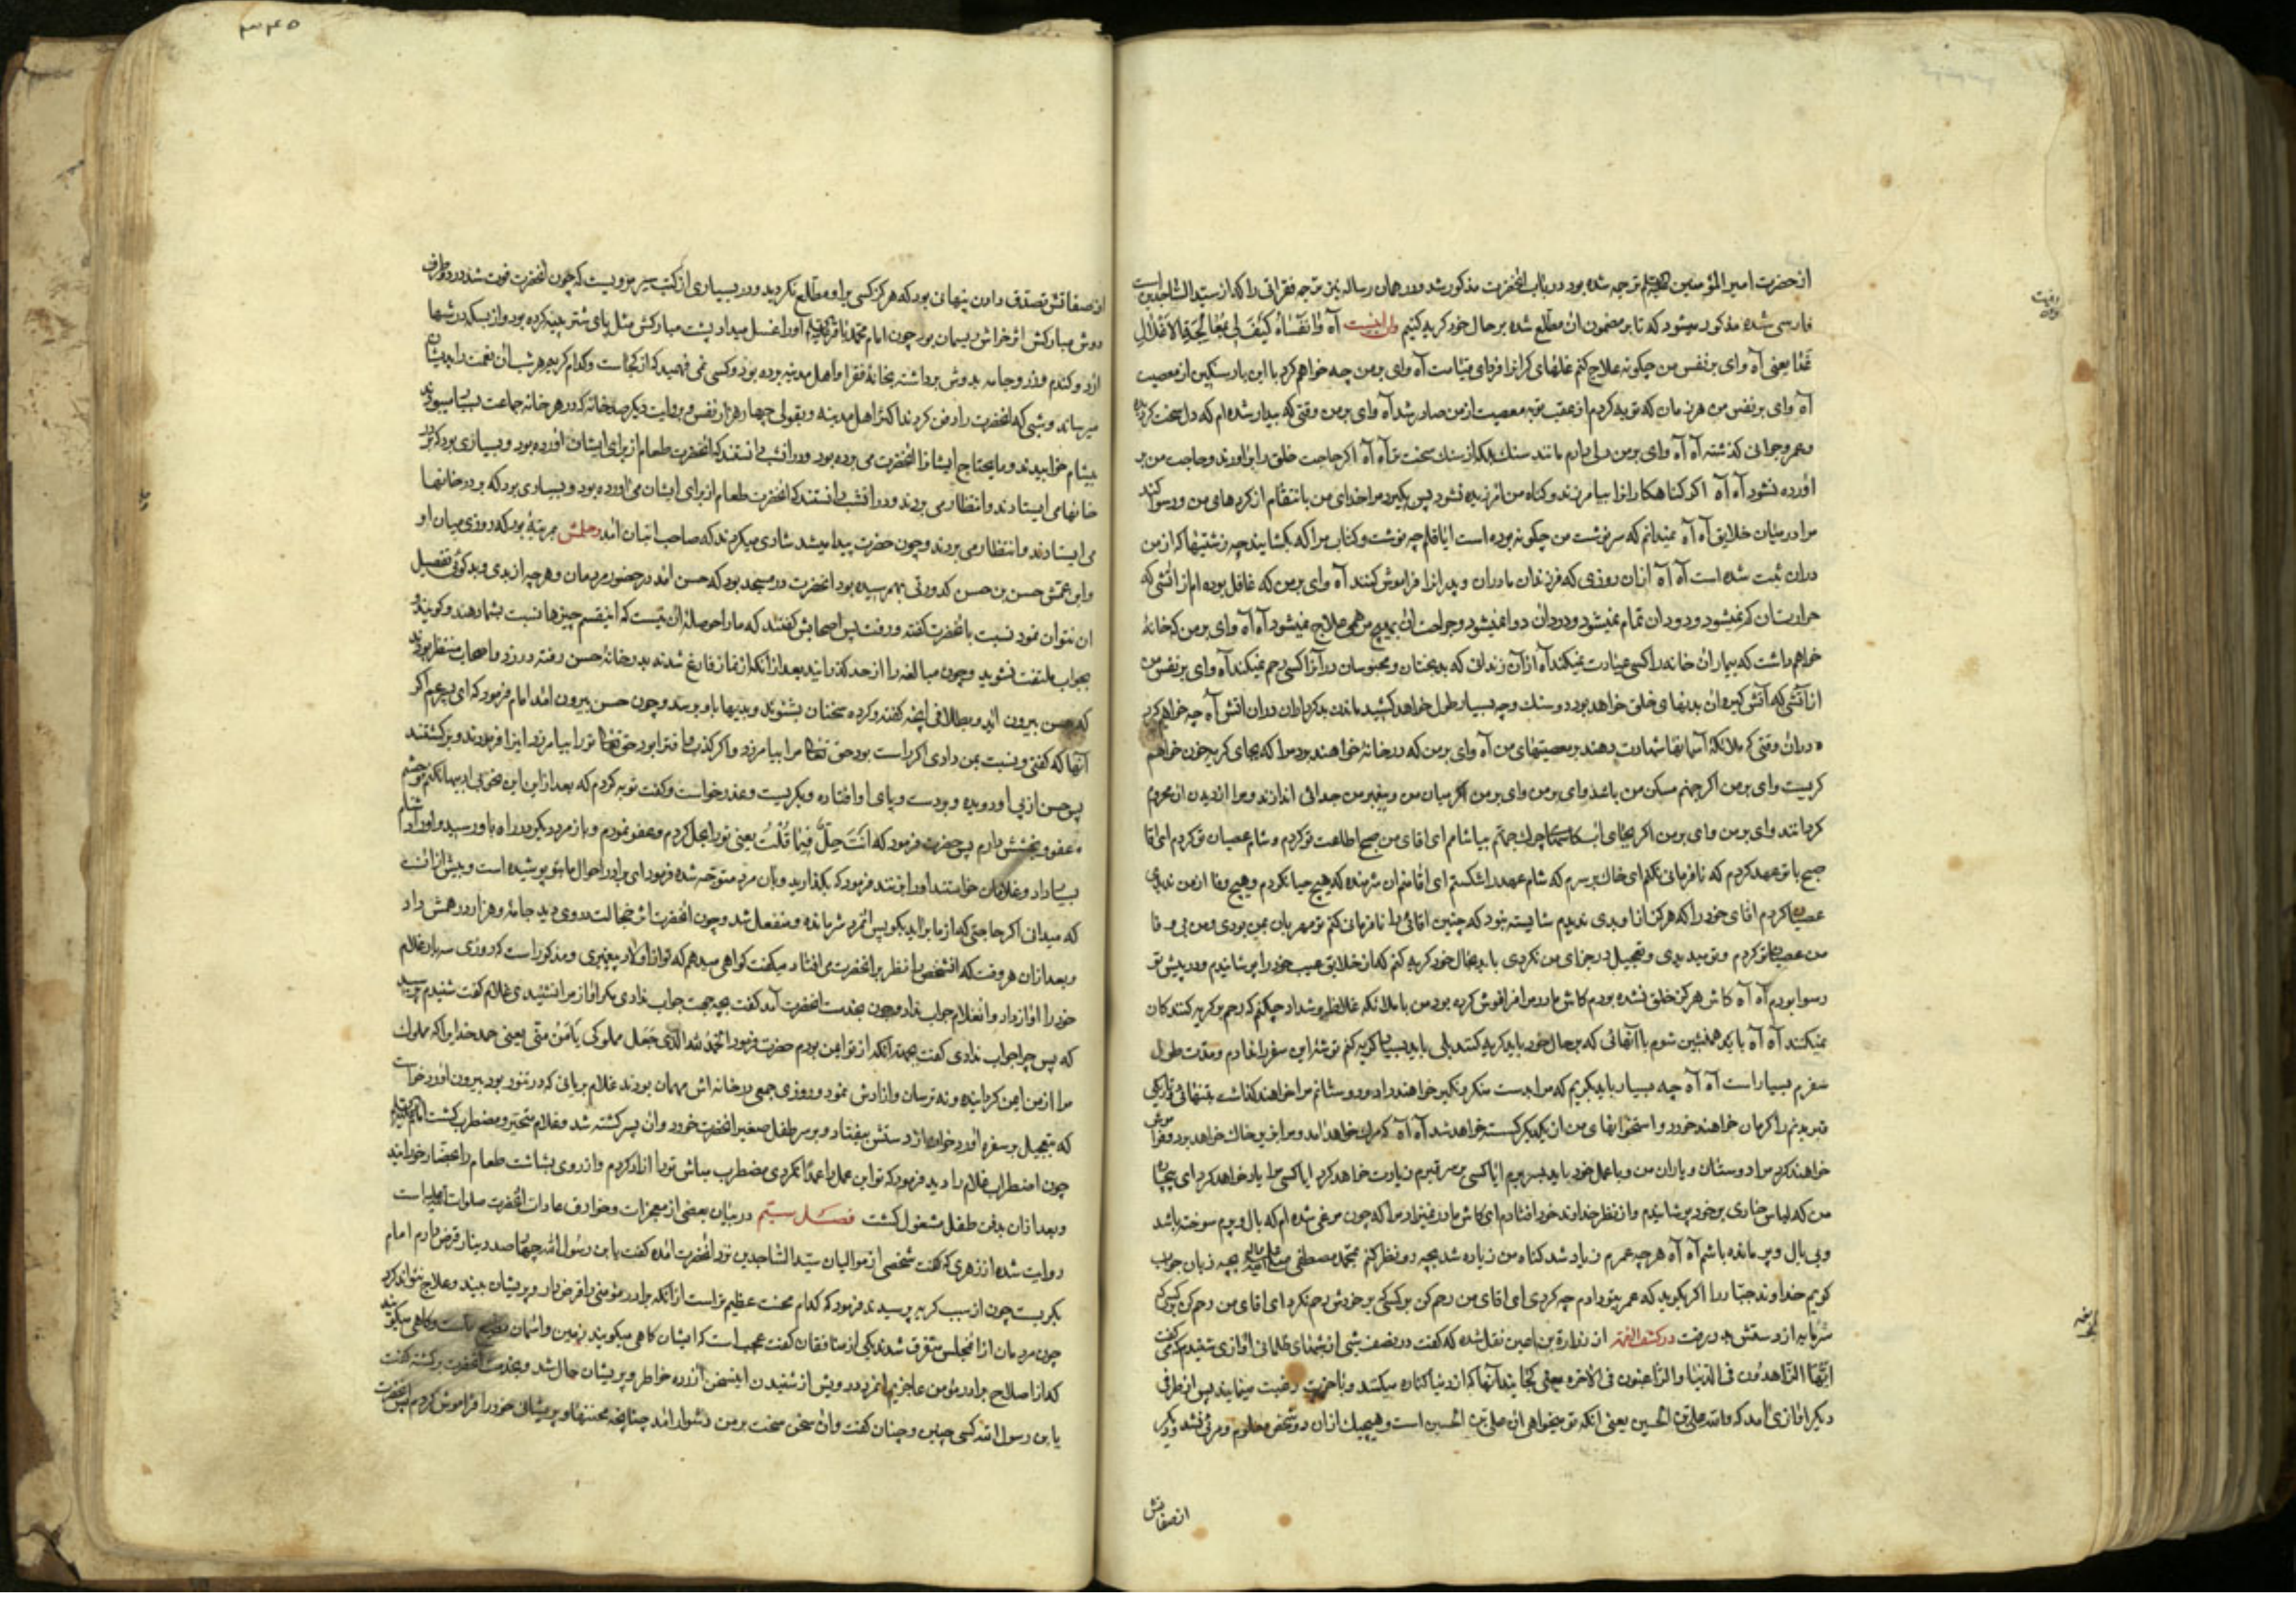 از حضرت امیر المؤمنین علیه السلام ترجمه شده بود در باب انحضرت مذکور شد و در همان رساله نیز ترجمه فقراتی را که از سید الساجدین است
فارسی شده مذکور میشود که تا بر مضمون ان مطلع شده بر حال خود گریه کنیم وان اینست آه وا نفساه کیف لی بمعالجة الاغلال
غدا یعنی آه وای بر نفس من چکونه علاج کنم غلهای کرانرا فردای قیامت آه وای بر من چه خواهم کرد با این بار سنکین از معصیت
آه وای بر نفس من هر زمان که توبه کردم از عقب توبه معصیت از من صادر شد آه وای بر من وقتی که بیدار شده ام که دل سخت کردیده
و عمر و جوانی کذشته آه آه وای بر من دلی دارم مانند سنك بلکه از سنك سخت تر آه آه اکر حاجت خلق را براورند و حاجت من بر
اورده نشود آه آه اکر کناهکارانرا بیامرزند و کناه من امرزیده نشود پس بکیرد مرا خدای من بانتقام از کردهای من و رسوا کند
مرا در میان خلایق آه آه نمیدانم که سرنوشت من چکونه بوده است ایا قلم چه نوشت و کتاب مرا که بکشایند چه زشتیها که از من
دران ثبت شده است آه آه ازان روزی که فرزندان مادران و پدرانرا فراموش کنند آه وای بر من که غافل بوده ام از اتشی که
حرارتش کم نمیشود و دود ان تمام نمیشود و درد ان دوا نمیشود و جراحت ان بهیچ مرهمی علاج نمیشود آه آه وای بر من که خانهٔ
خواهم داشت که بیماران خانه را کسی عیادت نمیکند آه ازان زندانی که بدبختان و محبوسان در آنرا کسی رحم نمیکند آه وای بر نفس من
از آتشی که آتش کیره ان بدنهای خلق خواهد بود و سنك و چه بسیار طول خواهد کشید ماندن بدکرداران دران اتش آه چه خواهم کرد
دران وقتی که ملائکهٔ آسمانها شهادت دهند بر معصیتهای من آه وای بر من که در خانهٔ خواهند برد مرا که بجای کریه خون خواهم
کریست وای بر من اکر جهنم مسکن من باشد وای بر من وای بر من اکر میان من و پیغمبر من جدائی اندازند و مرا از دیدن او محروم
کردانند وای بر من وای بر من اکر بجای اب چرك جهنم بیاشامم ای اقای من صبح اطاعت تو کردم و شام عصیان تو کردم ای اقا
صبح با تو عهد کردم که نافرمانی نکنم ای خاك بر سرم که شام عهد را شکستم ای اقا منم ان شرمنده که هیچ حیا نکردم و هیچ وفا از من ندیدی
عصیان کردم اقای خود را که هرکز از او بدی ندیدم شایسته نبود که چنین اقائی را نافرمانی کنم تو مهربان بمن بودی و من بی وفا
من عصیان تو کردم و تو میدیدی و تعجیل در جزای من نکردی باید بحال خود کریه کنم که از خلایق عیب خود را پوشانیدم و در پیش تو
رسوا بودم آه آه کاش هرکز خلق نشده بودم کاش مادر مرا فراموش کرده بود من با ملائکه غلاظ و شداد چکنم که رحم بر کریه کنندکان
نمیکنند آه آه باید همنشین شوم با آنهائی که بر حال خود باید کریه کنند بلی باید بسیار کریه کنم توشهٔ این سفر را ندارم و مدت طول
سفرم بسیار است آه آه چه بسیار باید بکریم که مرا بدست منکر و نکیر خواهند داد و دوستانم مرا خواهند کذاشت بتنهائی و تاریکی
قبر بدنم را کرمان خواهند خورد و استخوانهای من از یکدیکر کسسته خواهد شد آه آه که مرك خواهد امد و مرا بزیر خاك خواهد برد و فراموش
خواهند کرد مرا دوستان و یاران من و با عمل خود باید بسر بریم ایا کسی بر سر قبرم زیارت خواهد کرد ایا کسی مرا یاد خواهد کرد ای بیچاره
من که لباس خواری بر خود پوشانیدم و از نظر خداوند خود افتادم ای کاش مادر نمیزاد مرا که چون مرغی شده ام که بال و پرم سوخته باشد
و بی بال و پر مانده باشم آه آه هر چه عمرم زیاد شد کناه من زیاده شد بچه رو نظر کنم بمحمد مصطفی صلی الله علیه و اله بچه زبان جواب
کویم خداوند جبار را اکر بکوید که عمر بتو دادم چه کردی ای اقای من رحم کن بر کسی که بر خودش رحم نکرد ای اقای من رحم کن بر کسی که
سرمایه از دستش بدر رفت در کشف الغمه از زراره بن اعین نقل شده که کفت در نصف شبی از شبهای ظلمانی اوازی شنیدم که میکفت
ایها الزاهدون فی الدنیا والراغبون فی الاخره یعنی کجایند آنها که از دنیا کناره میکنند و باخرت رغبت مینمایند پس از طرفی
دیکر اوازی امد که والله علی بن الحسین یعنی انکه تو میخواهی ان علی بن الحسین است و هیچیك ازان دو شخص معلوم و مرئی نشد و دیکر
از صفاتش
از صفاتش تصدق دادن پنهانی بود که هرکز کسی بر او مطلع نکردید و در بسیاری از کتب سیر مرویست که چون انحضرت فوت شد در دو طرف
دوش مبارکش اثر خراش ریسمان بود چون امام محمد باقر علیه السلام او را غسل میداد پشت مبارکش مثل پای شتر پینه کرده بود و از بسکه در شبها
ارد و کندم و زر و جامه بدوش برداشته بخانهٔ فقرا و اهل مدینه برده بود و کسی نمی فهمید که از کجاست و کدام کریم هر شب ان نعمت را بدیشان
میرساند و شبی که انحضرت را دفن کردند اکثر اهل مدینه و بقولی چهار هزار نفس و بروایت دیکر صد خانه که در هر خانه جماعت بسیار میبودند
بیشام خوابیدند و ما یحتاج ایشانرا انحضرت می برده بود و در انشب دانستند که انحضرت طعام از برای ایشان اورده بود و بسیاری بود که بر در
خانها می ایستادند و انتظار می بردند و در انشب دانستند که انحضرت طعام از برای ایشان می اورده بود و بسیاری بود که بر در خانها
می ایستادند و انتظار می بردند و چون حضرت پیدا میشد شادی میکردند که صاحب انبان امد وحلمش بمرتبهٔ بود که روزی میان او
و ابن عمش حسن بن حسن کدورتی بهم رسیده بود انحضرت در مسجد بود که حسن امد در حضور مردمان و هر چه از بدی و بدکوئی تفصیل
ان نتوان نمود نسبت بانحضرت کفته و رفت پس اصحابش کفتند که ما را حوصلهٔ ان نیست که اینقسم چیزها نسبت بشما دهند و کویند و
بجواب ملتفت نشوید و چون مبالغه را از حد کذرانیدند بعد ازانکه از نماز فارغ شدند بدر خانهٔ حسن رفته در زد و اصحاب منتظر بودند
که حسن بیرون اید و بتلافی انچه کفته و کرده سخنان بشنود و چون حسن بیرون امد امام فرمود که ای پسر عم اکر
آنها که کفتی و نسبت بمن دادی اکر راست بود حق تعالی مرا بیامرزد و اکر کذب و افترا بود حق تعالی ترا بیامرزد اینرا فرمودند و برکشتند
پس حسن از پی او دویده و بدست و پای او افتاده و بکریست و عذر خواست و کفت توبه کردم که بعد از این
عفو و بخشش دارم پس حضرت فرمود که انت حل فیما قلت یعنی ترا بحل کردم و عفو نمودم و باز مردی دیکر در راه باو رسید و او را دشنام
بسیار داد و غلامان خواستند او را بزنند فرمود که بکذارید و بان مرد متوجه شده فرمود ای برادر احوال ما بتو پوشیده است و بیش از انست
که میدانی اکر حاجتی که از ما براید بکو پس انمرد شرمنده و منفعل شد و چون انحضرت اثر خجالت در وی دید جامهٔ و هزار درهمش داد
و بعد ازان هر وقت که انشخص را نظر بر انحضرت می افتاد میکفت کواهی میدهم که تو از اولاد پیغمبری و مذکور است که روزی سه بار غلام
خود را اواز داد و انغلام جواب نداد و چون بخدمت انحضرت آمد کفت بچه جهت جواب ندادی مکر اواز مرا نشنیدی غلام کفت شنیدم پرسید
که پس چرا جواب ندادی کفت بجهة آنکه از تو ایمن بودم حضرت فرمود الحمد لله الذی جعل مملوکی یأمن منی یعنی حمد خدایرا که مملوك
مرا از من ایمن کردانیده و نه ترسان و ازادش نمود و روزی جمعی در خانه اش مهمان بودند غلام بریانی که در تنور بود بیرون اورد خواست
که بتعجیل بر سفره اورد خوان از دستش بیفتاد و بر سر طفل صغیر انحضرت خورد و ان پسر کشته شد و غلام متحیر و مضطرب کشت امام علیه السلام
چون اضطراب غلام را دید فرمود که تو این عمل را عمدا نکردی مضطرب مباش ترا ازاد کردم و از روی بشاشت طعام را بحضار خورانید
و بعد ازان بدفن طفل مشغول کشت فصل سیم در بیان بعضی از معجزات و خوارق عادات انحضرت صلوات الله علیه است
روایت شده از زهری که کفت شخصی از موالیان سید الساجدین نزد انحضرت امده کفت یا بن رسول الله چهار صد دینار قرض دارم امام
بکریست چون از سبب کریه پرسیدند فرمود که کدام محنت عظیم تر است از آنکه برادر مؤمنی را قرض دار و پریشان ببیند و علاج نتواند کرد
چون مردمان از انمجلس متفرق شدند یکی از منافقان کفت عجب است که ایشان کاهی میکویند زمین و اسمان مطیع ماست و کاهی میکویند
که از اصلاح برادر مؤمن عاجزیم انمرد درویش از شنیدن اینسخن ازرده خاطر و پریشان حال شد و بخدمت انحضرت برکشته کفت
یا بن رسول الله کسی چنین و چنان کفت و ان سخن سخت بر من دشوار امد چنانچه محنتها و پریشانی خود را فراموش کردم پس انحضرت